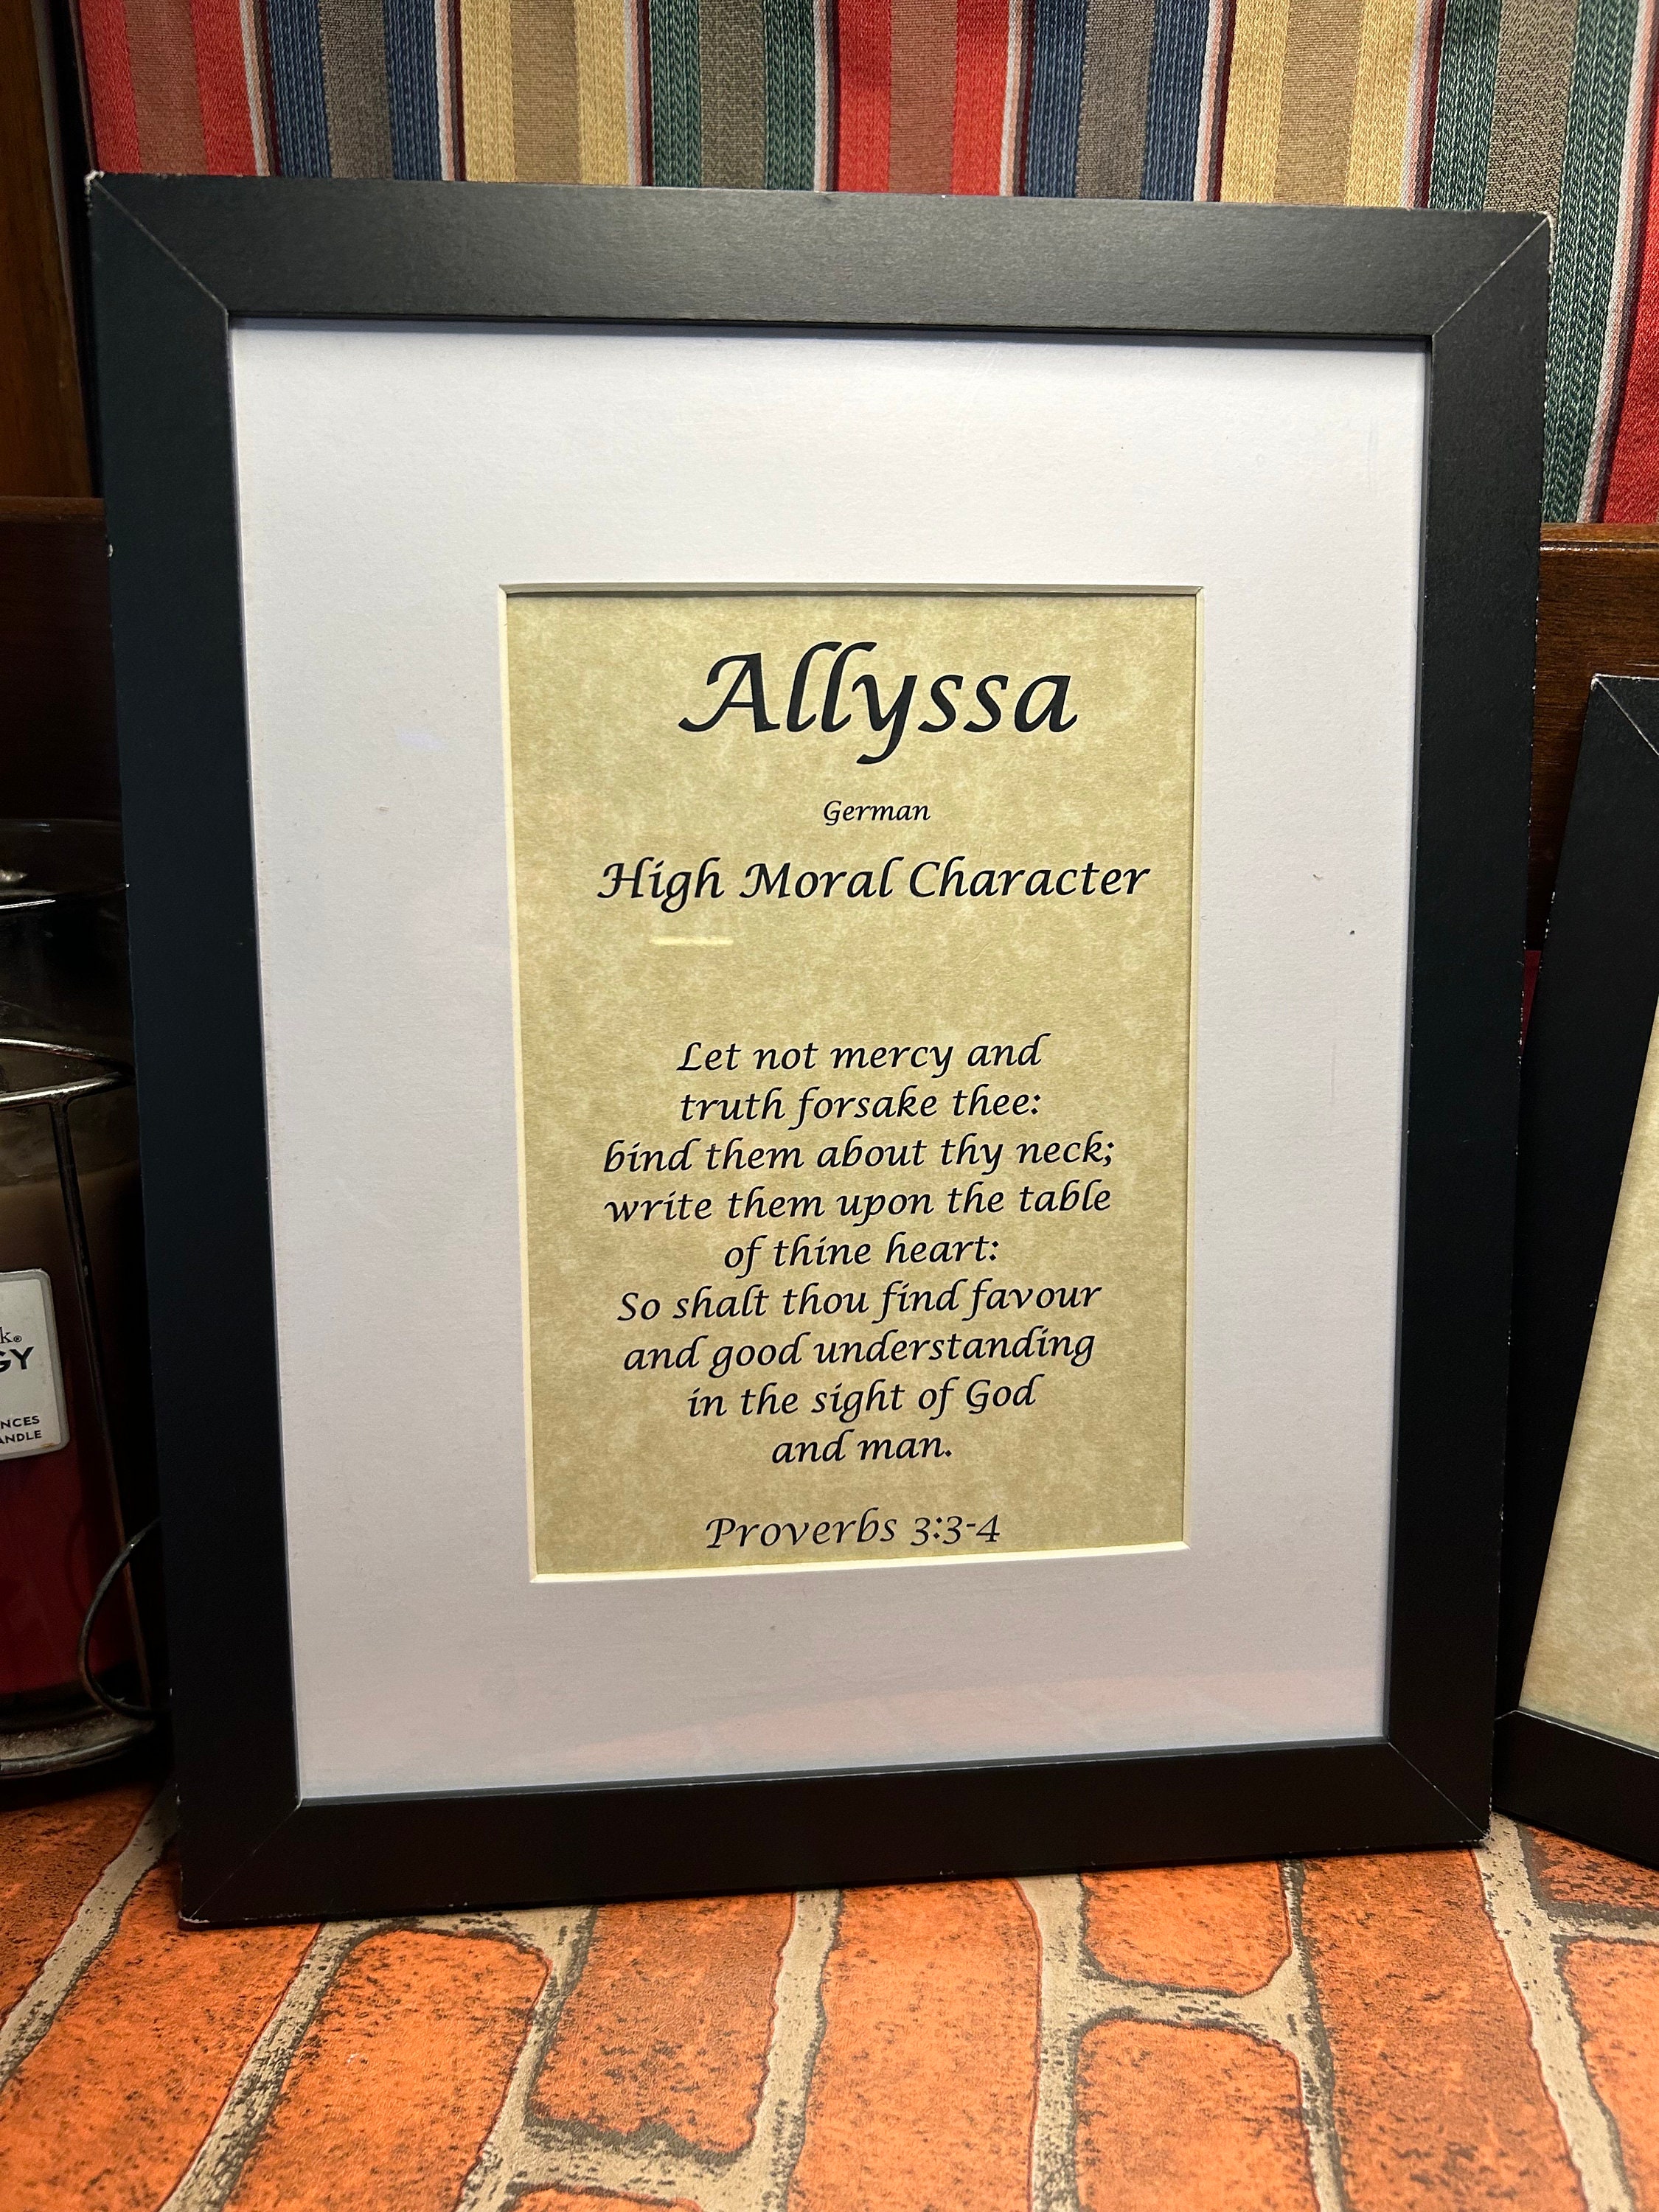 Allyssa
German
High Moral Character
Let not mercy and
truth forsake thee:
bind them about thy neck;
write them upon the table
of thine heart:
So shalt thou find favour
and good understanding
in the sight of God
and man.
Proverbs 3:3-4
k®
GY
NCES
ANDLE